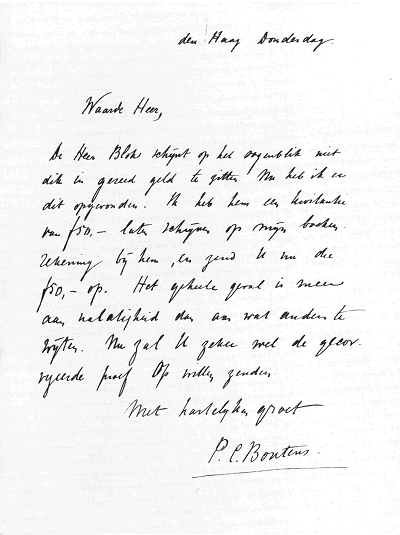 den Haag Donderdag.
Waarde Heer,
De Heer Blok schijnt op het oogenblik niet
dik in gereed geld te zitten. Nu heb ik er
dit opgevonden. Ik heb hem een kwitantie
van f50,- laten schrijven op mijn boeken-
rekening bij hem, en zend U nu die
f50,- op. Het geheele geval is meer
aan nalatigheid dan aan wat anders te
wijten. Nu zal U zeker wel de gecor-
rigeerde proef op willen zenden.
Met hartelijken groet
P.C. Boutens.